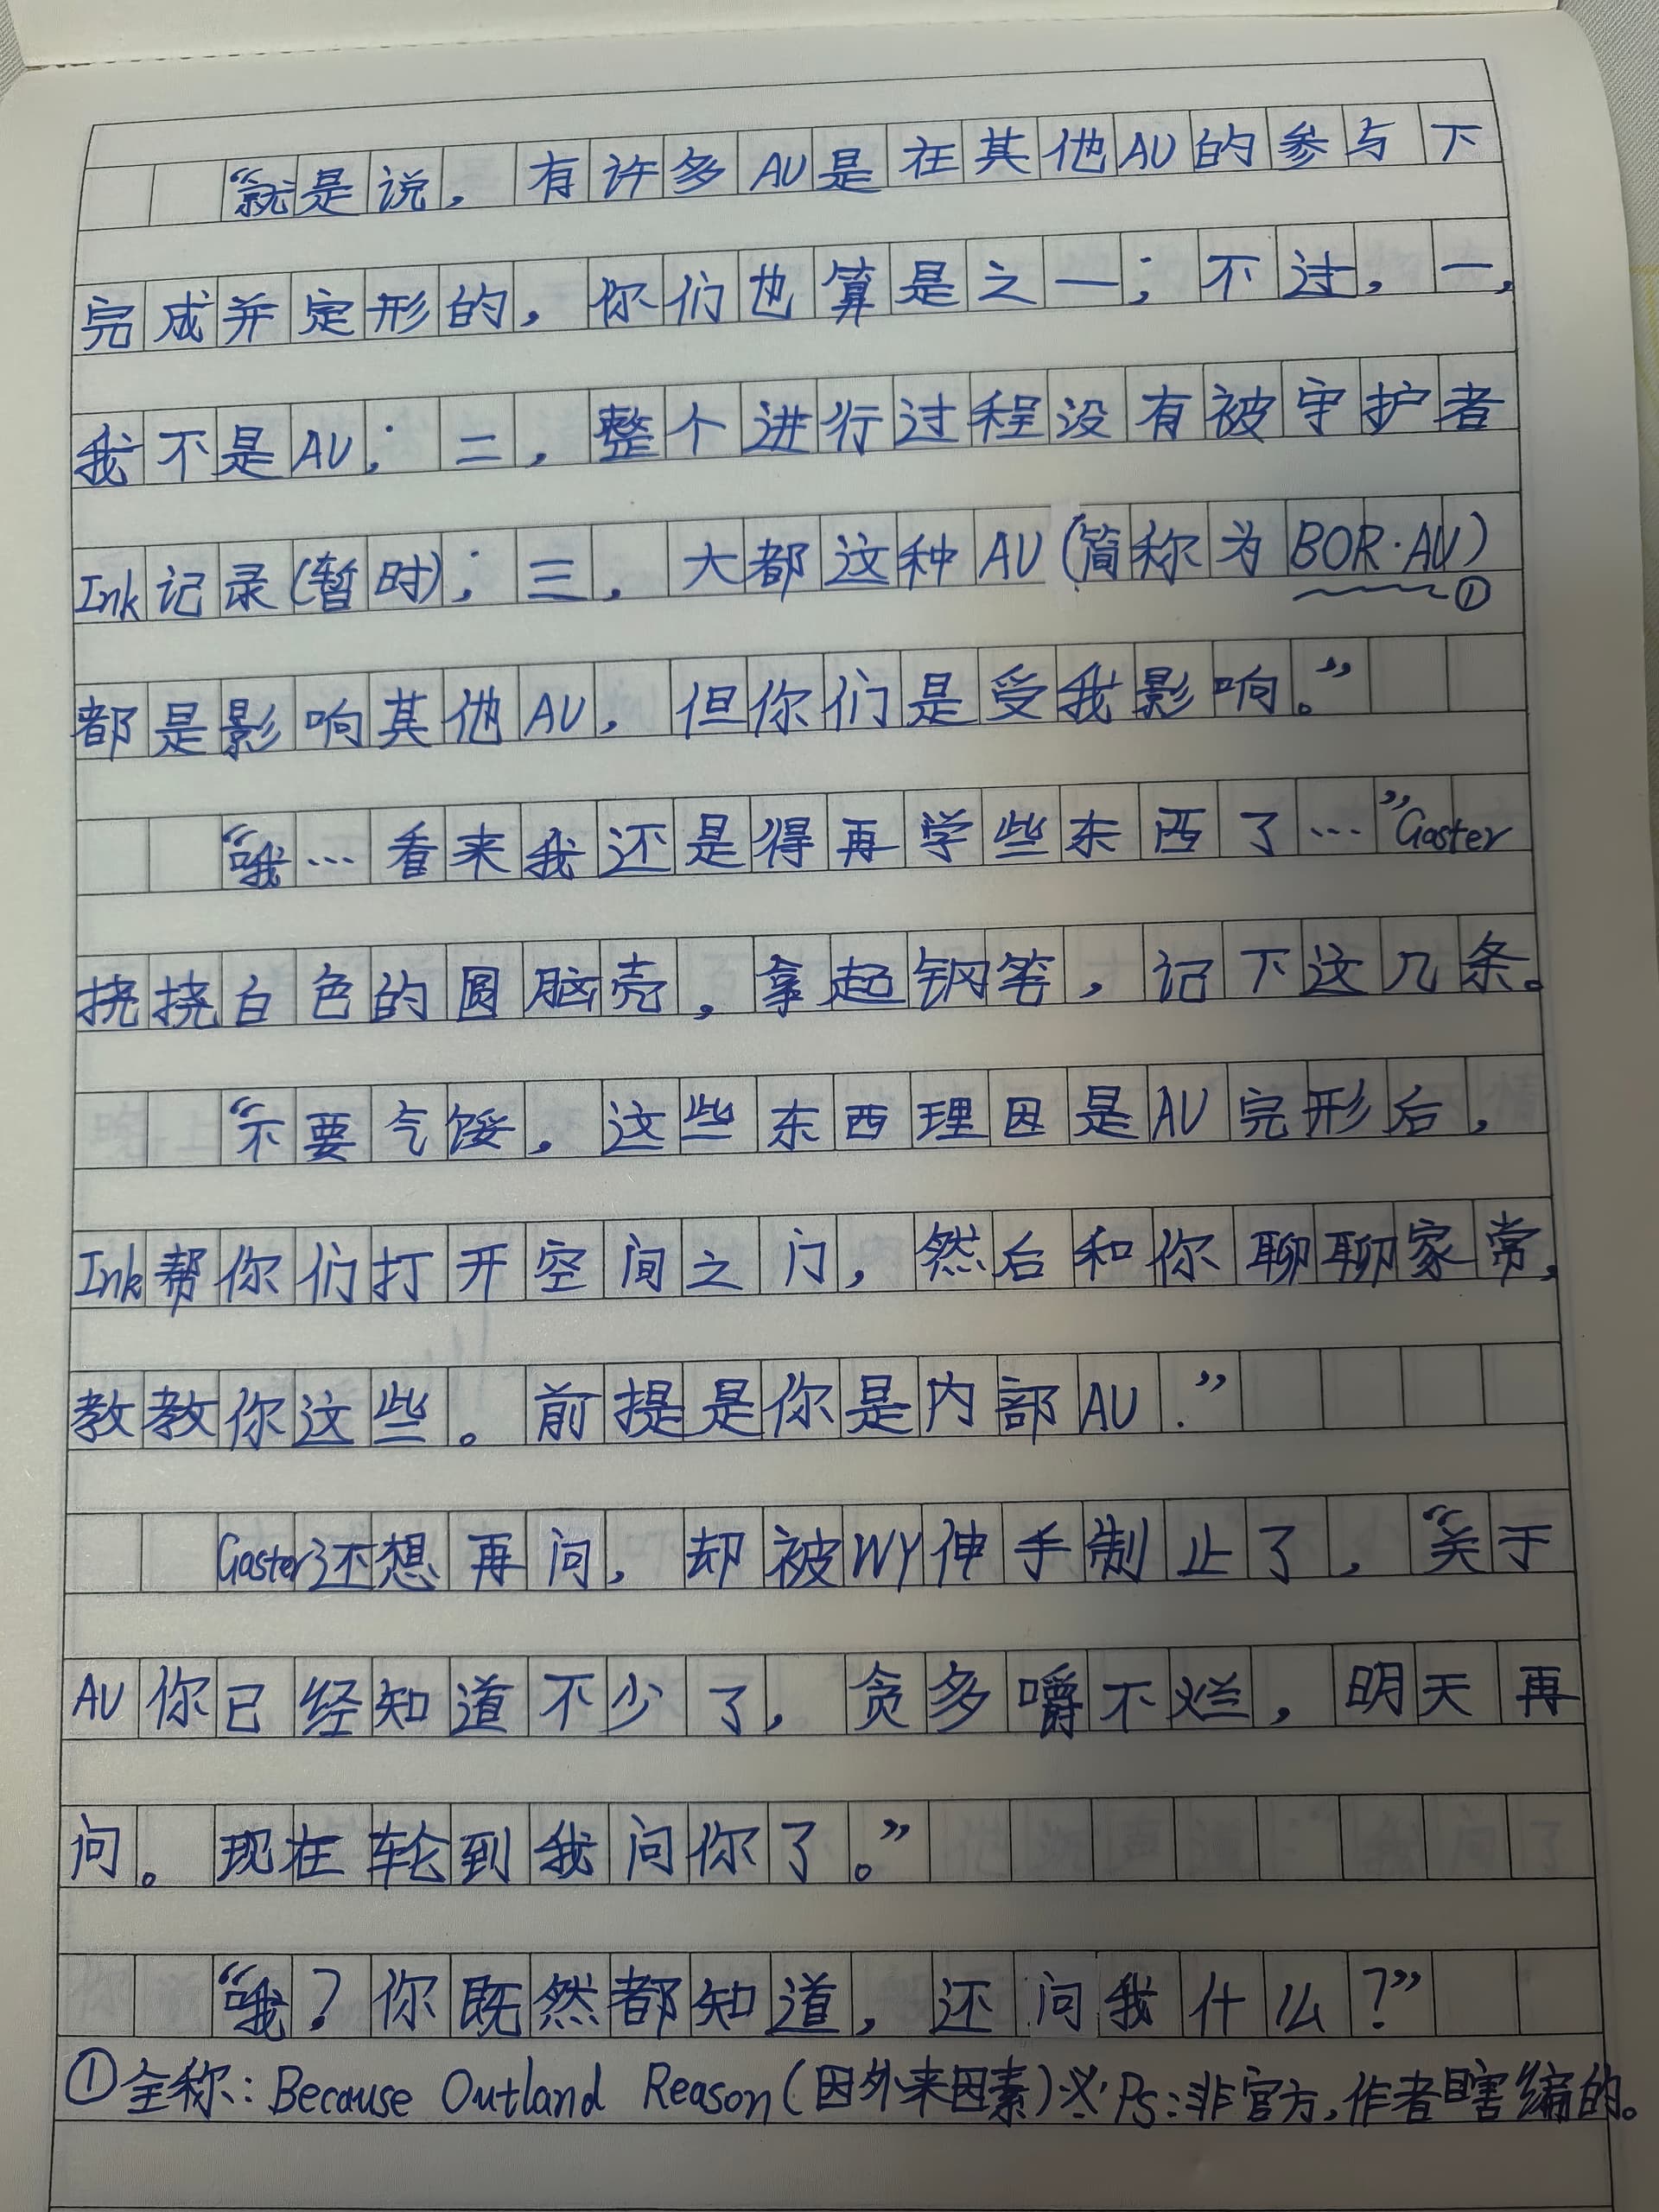 “就是说，有许多AU是在其他AU的参与下
完成并定形的，你们也算是之一；不过，一，
我不是AU；二，整个进行过程没有被守护者
Ink记录(暂时)；三，大都这种AU(简称为BOR·AU)
①
都是影响其他AU，但你们是受我影响。”
“哦…看来我还是得再学些东西了…”Gaster
挠挠白色的圆脑壳，拿起钢笔，记下这几条。
“不要气馁，这些东西理因是AU完形后，
Ink帮你们打开空间之门，然后和你聊聊家常，
教教你这些。前提是你是内部AU.”
Gaster还想再问，却被WY伸手制止了，“关于
AU你已经知道不少了，贪多嚼不烂，明天再
问。现在轮到我问你了。”
“哦？你既然都知道，还问我什么？”
①全称：Because Outland Reason(因外来因素)※Ps：非官方，作者瞎编的。